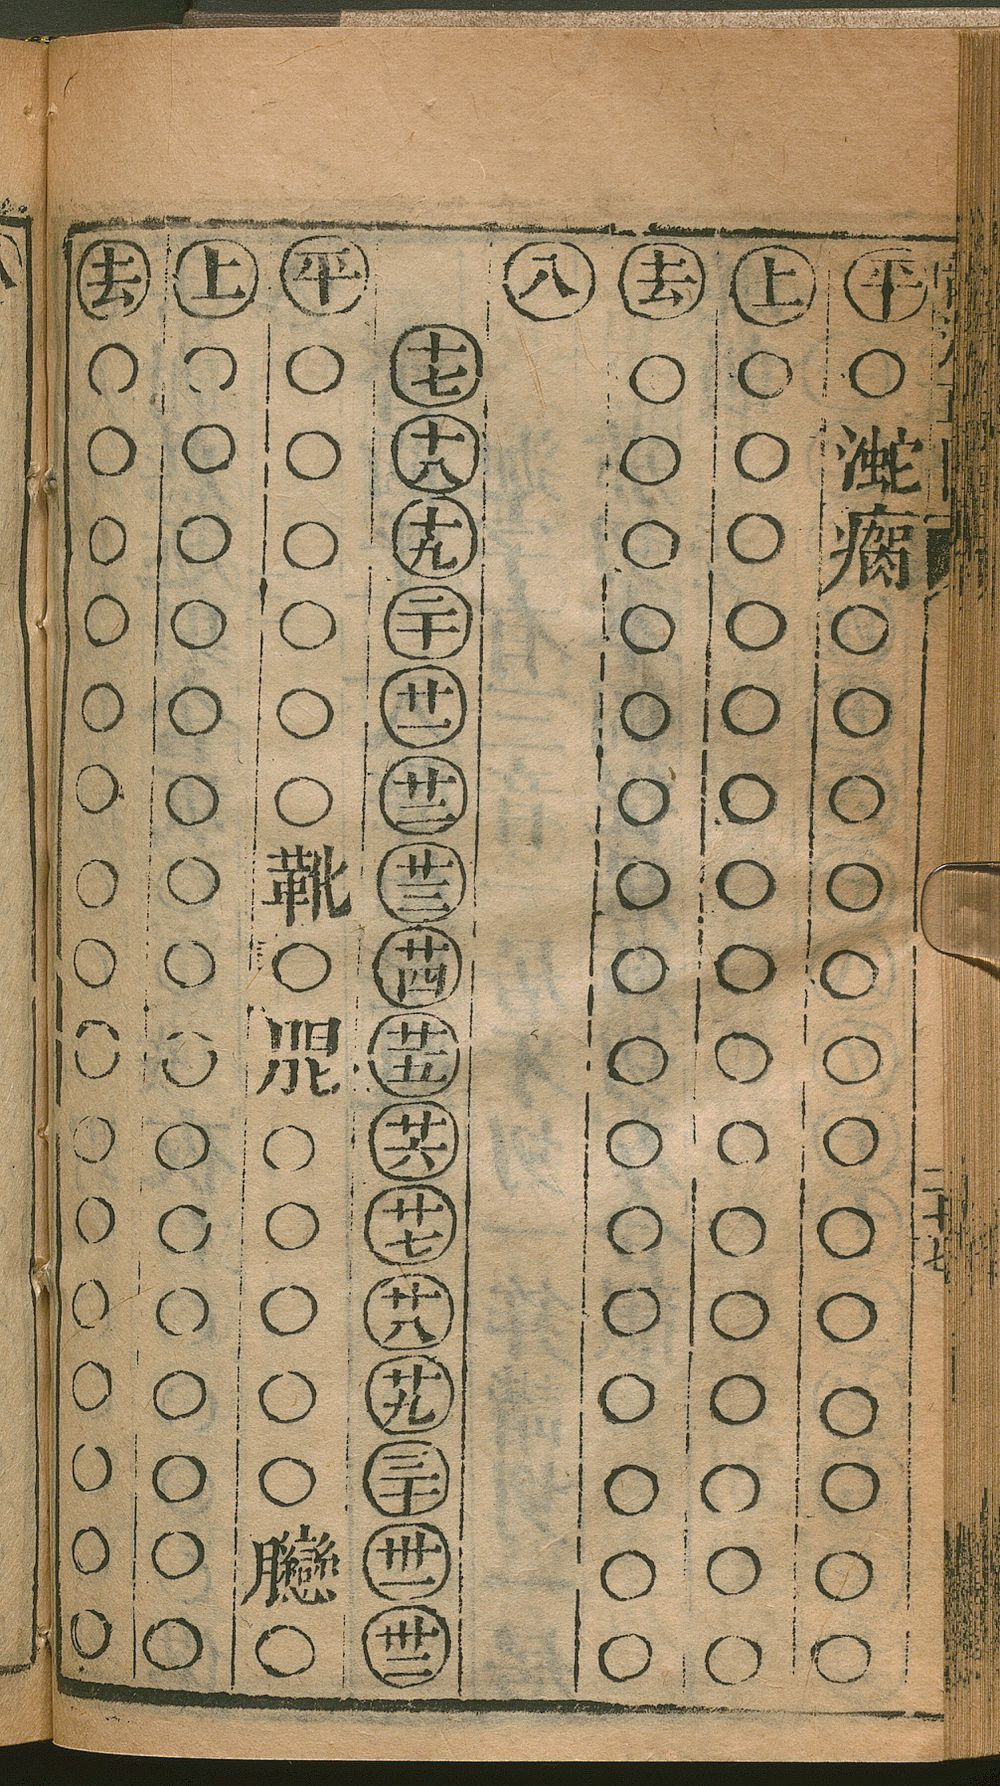 二十七
平○瘸○○○○○○○○○○○○○
上○○○○○○○○○○○○○○○○
去○○○○○○○○○○○○○○○○
入
十七 十八 十九 二十 廿一 廿二 廿三 廿四 廿五 廿六 廿七 廿八 廿九 三十 卅一 卅二
平○○○○○○靴○○○○○○○
上○○○○○○○○○○○○○○○○
去○○○○○○○○○○○○○○○○